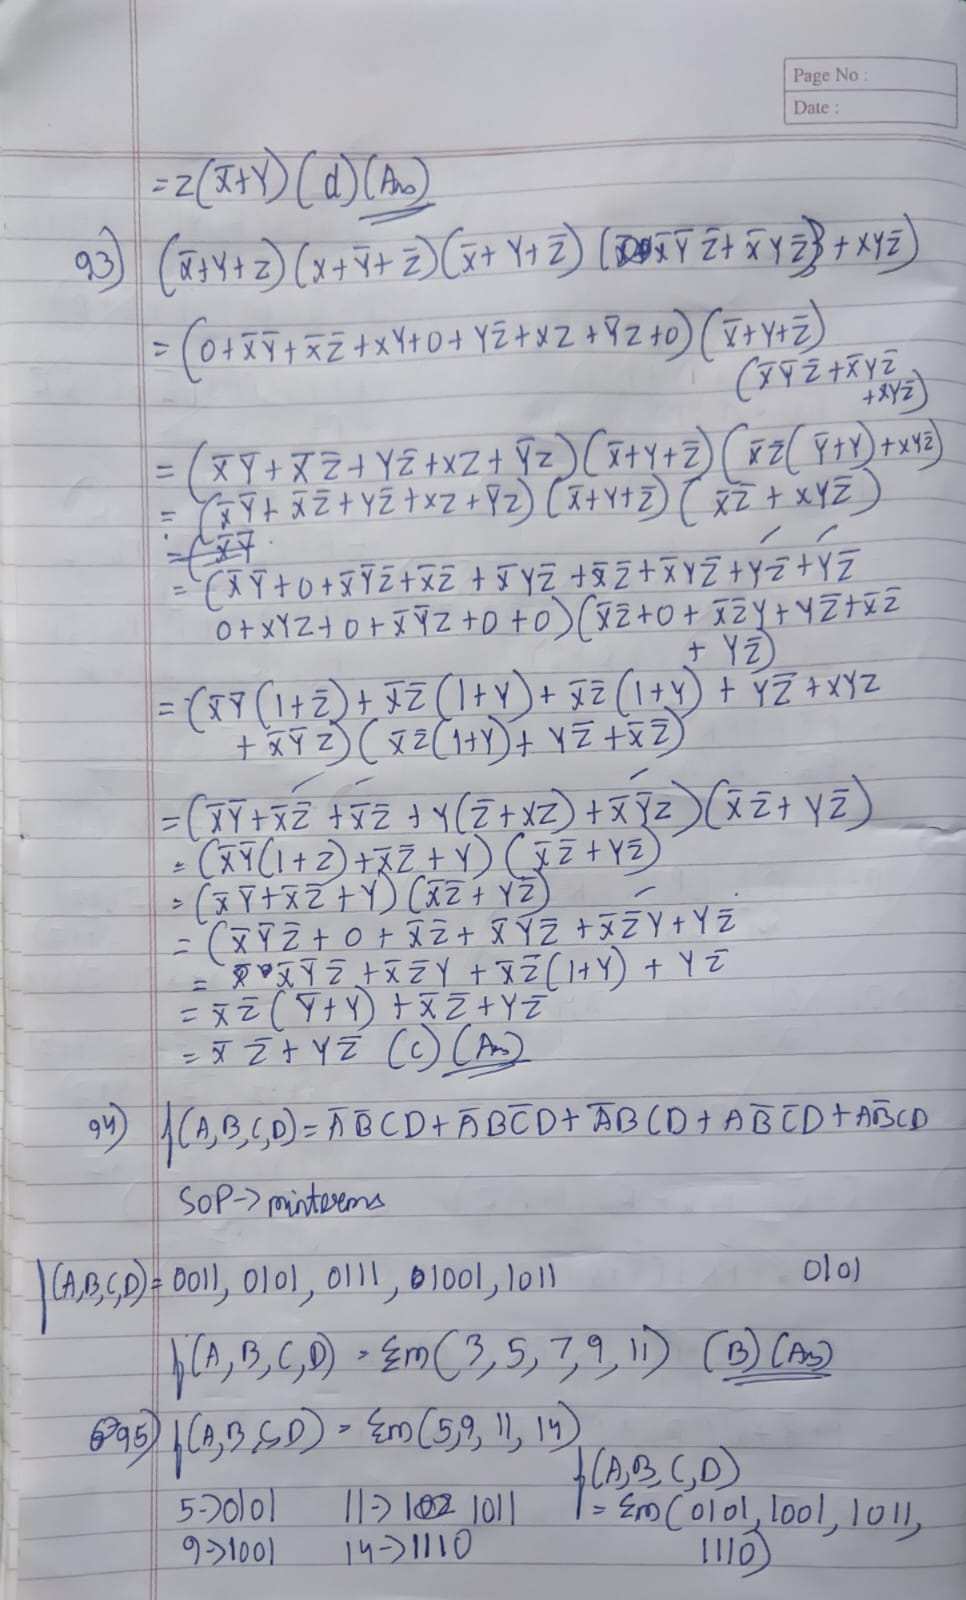 Page No :
Date :
= z(X̅+Y) (d) (Ans)
93) (X̅+Y+Z) (X+Y̅+Z̅) (X̅+Y+Z̅) (X̅Y̅Z̅+X̅YZ̅+XYZ̅)
= (0+X̅Y̅+X̅Z̅+XY+0+YZ̅+XZ+Y̅Z+0) (X̅+Y+Z̅)
(X̅Y̅Z̅+X̅YZ̅
+XYZ̅)
= (X̅Y̅+X̅Z̅+YZ̅+XZ+Y̅Z) (X̅+Y+Z̅) (X̅Z̅(Y̅+Y)+XYZ̅)
= (X̅Y̅+X̅Z̅+YZ̅+XZ+Y̅Z) (X̅+Y+Z̅) (X̅Z̅+XYZ̅)
= (X̅Y̅+0+X̅Y̅Z̅+X̅Z̅+X̅YZ̅+X̅Z̅+X̅YZ̅+YZ̅+YZ̅
0+XYZ+0+X̅Y̅Z+0+0) (X̅Z̅+0+X̅Z̅Y+YZ̅+X̅Z̅
+ YZ̅)
= (X̅Y̅(1+Z̅)+X̅Z̅(1+Y)+X̅Z̅(1+Y)+YZ̅+XYZ
+X̅Y̅Z) (X̅Z̅(1+Y)+YZ̅+X̅Z̅)
= (X̅Y̅+X̅Z̅+X̅Z̅+Y(Z̅+XZ)+X̅Y̅Z) (X̅Z̅+YZ̅)
= (X̅Y̅(1+Z)+X̅Z̅+Y) (X̅Z̅+YZ̅)
= (X̅Y̅+X̅Z̅+Y) (X̅Z̅+YZ̅)
= (X̅Y̅Z̅+0+X̅Z̅+X̅YZ̅+X̅Z̅Y+YZ̅
= X̅Y̅Z̅+X̅Z̅Y+X̅Z̅(1+Y)+YZ̅
= X̅Z̅(Y̅+Y)+X̅Z̅+YZ̅
= X̅Z̅+YZ̅ (C) (Ans)
94) f(A,B,C,D) = A̅B̅CD+A̅BC̅D+A̅BCD+AB̅C̅D+AB̅CD
SOP-> minterms
f(A,B,C,D) = 0011, 0101, 0111, 01001, 1011 0101
f(A,B,C,D) = Σm(3,5,7,9,11) (B) (Ans)
95) f(A,B,C,D) = Σm(5,9,11,14)
f(A,B,C,D)
5->0101 11-> 1011 = Σm(0101, 1001, 1011,
9->1001 14->1110 1110)